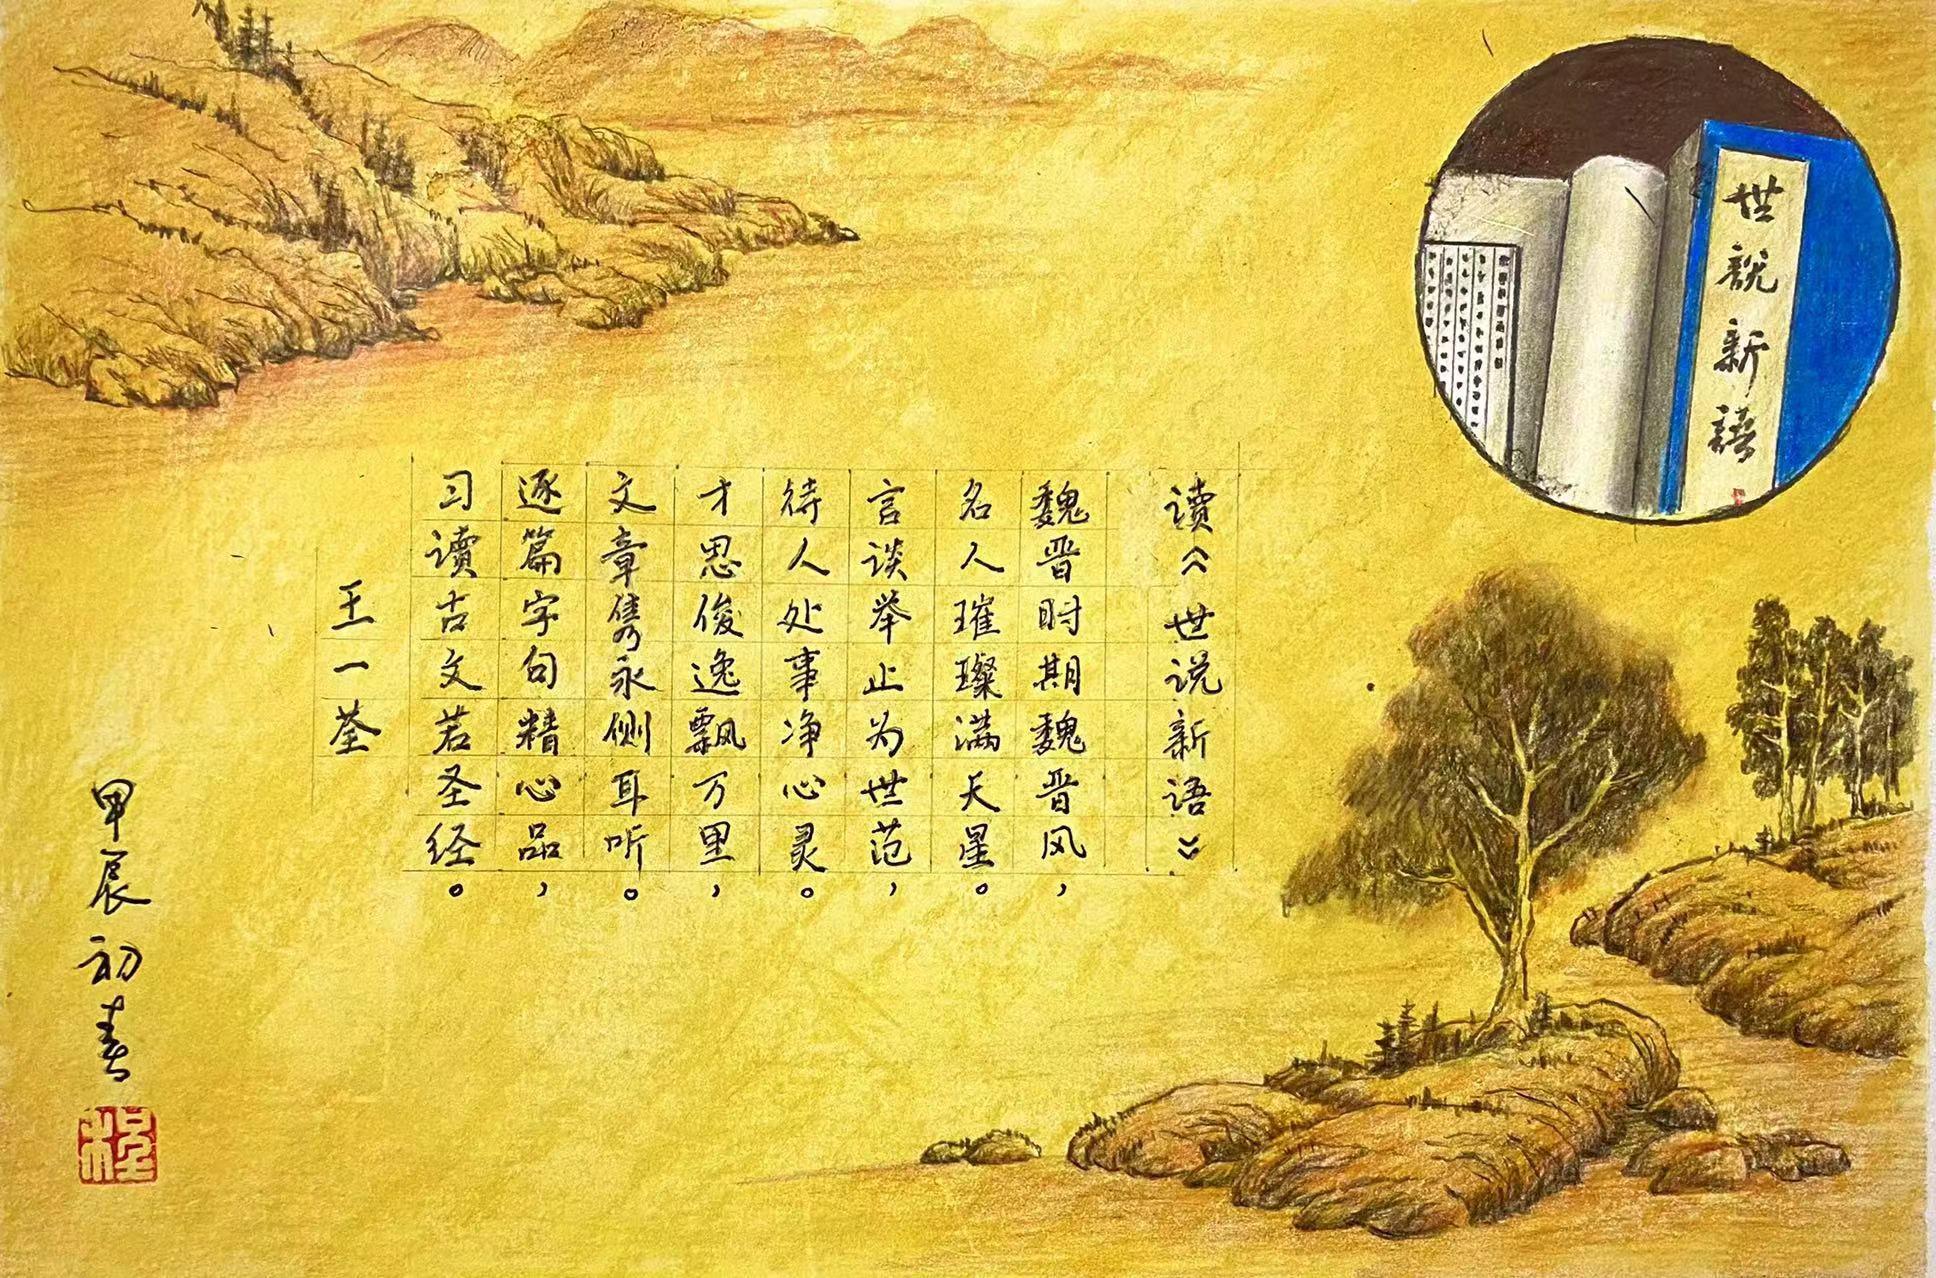 世說新語
读《世说新语》
魏晋时期魏晋风，
名人璀璨满天星。
言谈举止为世范，
待人处事净心灵。
才思俊逸飘万里，
文章隽永侧耳听。
逐篇字句精心品，
习读古文若圣经。
王一荃
甲辰初春
程